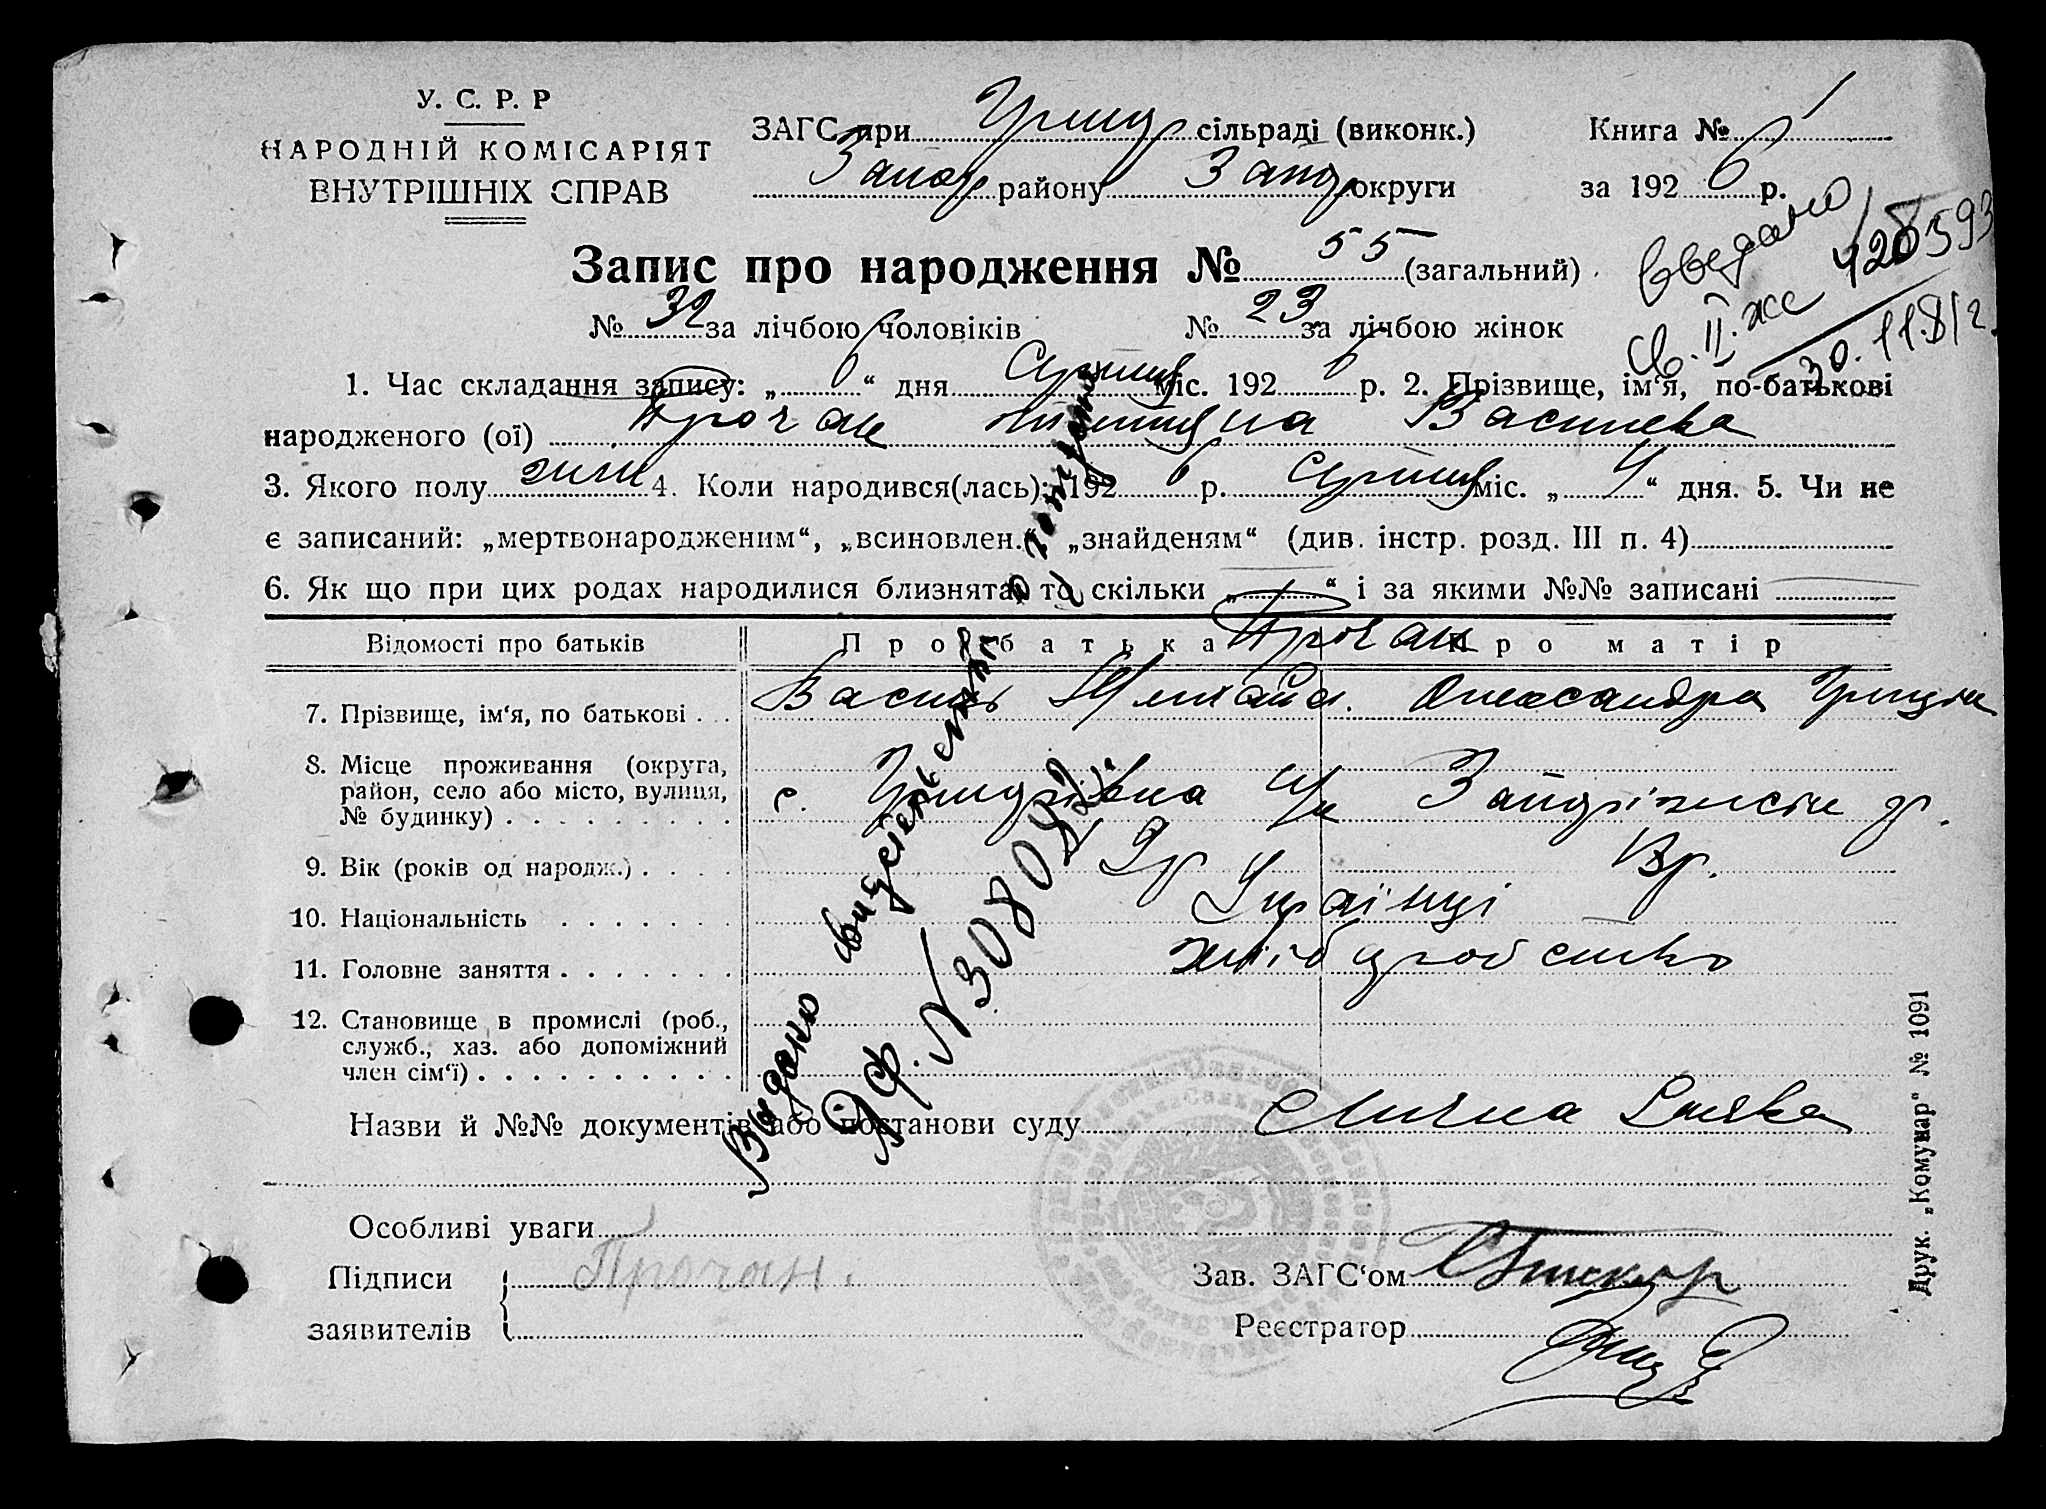 У. С. Р. Р
НАРОДНІЙ КОМІСАРІЯТ
ВНУТРІШНІХ СПРАВ
ЗАГС при сільраді (виконк.)
Книга № 1
Запор району Запор округи
за 1926 р.
Запис про народження № 55 (загальний)
№ 32 за лічбою чоловіків № 23 за лічбою жінок
1. Час складання запису: „6“ дня Серпня міс. 1926 р. 2. Прізвище, ім‘я, по-батькові
народженого (ої) Прочан Васильева
3. Якого полу жін 4. Коли народився(лась): 1926 р. Серпня міс. „4“ дня. 5. Чи не
є записаний: „мертвонародженим“, „всиновлен.“, „знайденям“ (див. інстр. розд. III п. 4)
6. Як що при цих родах народилися близнята, то скільки „ “ і за якими №№ записані
Відомості про батьків Про батька Про матір
Прочан
7. Прізвище, ім‘я, по батькові Василь Михайл. Олександра
8. Місце проживання (округа,
район, село або місто, вулиця,
№ будинку)
с.
9. Вік (років од народж.)
10. Національність Українці
11. Головне заняття хліборобство
12. Становище в промислі (роб.,
служб., хаз. або допоміжний
член сім‘ї)
Назви й №№ документів або постанови суду Лична Заява
Особливі уваги
Підписи
заявителів
Прочан.
Зав. ЗАГС‘ом
Реєстратор
Друк. „Комунар“ № 1091
Выдано свидетельство о
№ 308042
введено
св. II. жс 420593
30.11.81г.